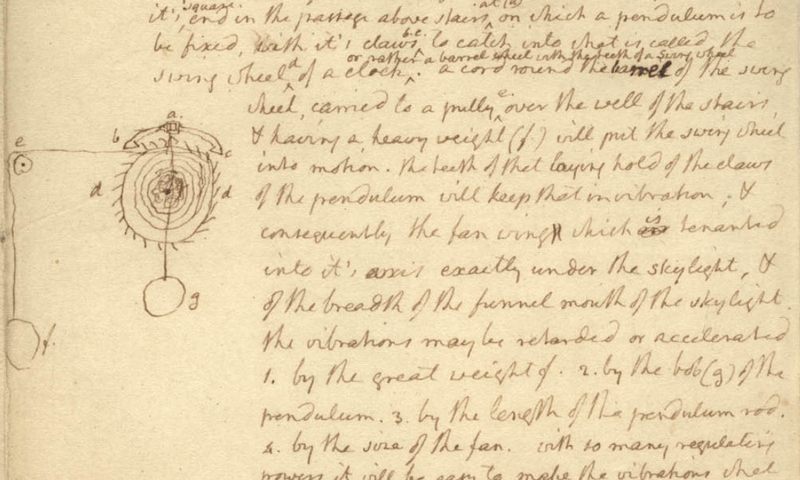 square at (a)
it's, end in the passage above stairs, on which a pendulum is to
b.c.
be fixed, with it's claws to catch into what is called the
or rather a barrel wheel with the teeth of a swing wheel
swing wheel d of a clock. a cord round the barrel of the swing
wheel, carried to a pully e. over the well of the stairs
& having a heavy weight (f.) will put the swing wheel
into motion. the teeth of that laying hold of the claws
of the pendulum will keep that in vibration, &
consequently the fan wing which is tenanted
into it's axis exactly under the skylight, &
of the breadth of the funnel mouth of the skylight.
the vibrations may be retarded or accelerated
1. by the great weight f. 2. by the bob (g) of the
pendulum. 3. by the length of the pendulum rod.
4. by the size of the fan. with so many regulating
powers it will be easy to make the vibrations what
a.
b
c
d
d
e
f.
g